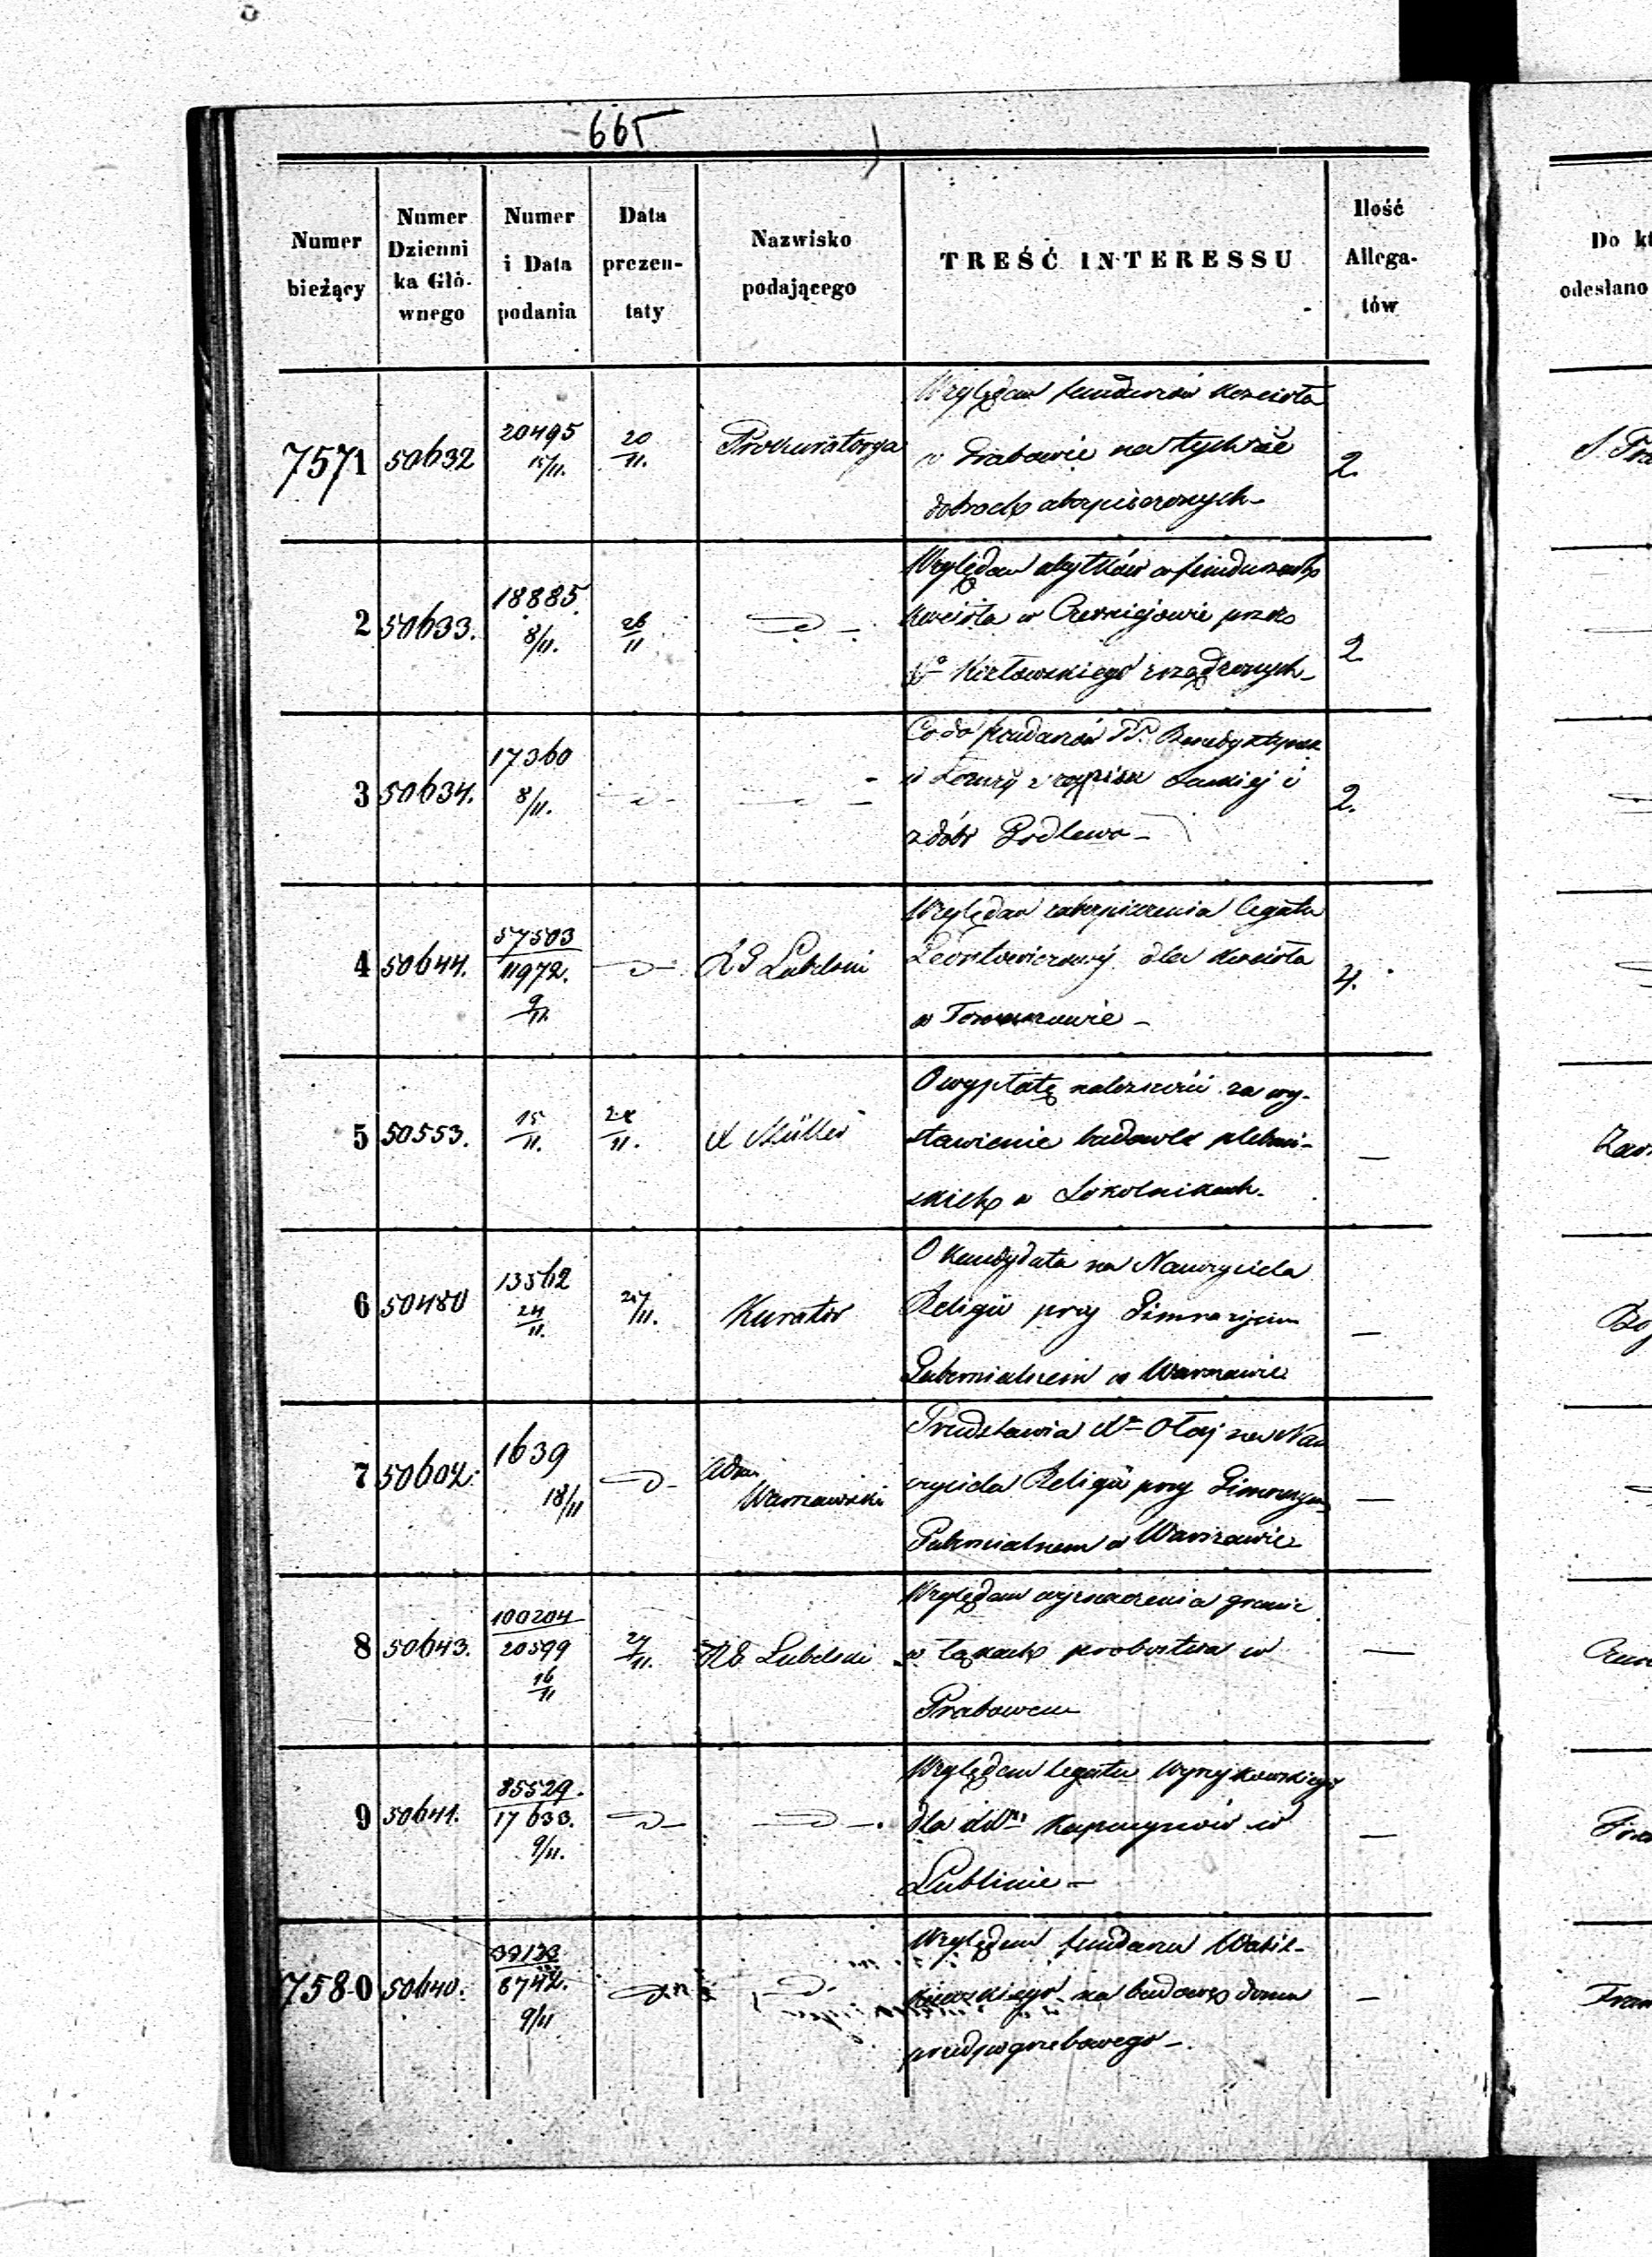 665
Numer bieżący
Numer Dzienni ka Głó- wnego
Numer i Data podania
Data prezen- taty
Nazwisko podającego
TREŚĆ INTERESSU
Ilość Allega- tów
Do
odesłano
7571 50632 20495 15/11. 20/11. Prokuratorya 2.
Względem funduszów kościoła
w Grabowie na tychże
dobrach
2 50633. 18885. 8/11. 26/11 2
Względem w funduszach
kościoła w Czerniejowie przez
Xa Kozłowskiego zrządzonych
3 50634. 17360 8/11. 2.
Co do funduszów PP. Benedyktynek
w Łomży z zapisu i
z dóbr Podlewo
4 50644. 57503 11972. 9/11. RG Lubelski 4.
Względem zabezpieczenia legatu
dla kościoła
w
5 50553. 15/11. /11. X Müller —
O wypłatę należności za wy-
stawienie budowli plebań-
skich w Sokolnikach.
6 50480 13562 24/11. 27/11. Kurator —
O kandydata na Nauczyciela
Religii przy Gimnazjum
Gubernialnem w Warszawie
7 50602. 1639 18/11 Adm Warszawski —
Przedstawia Xa na Nau
czyciela Religii przy Gimnazjum
Gubernialnem w Warszawie
8 50643. 100204 20599 16/11 27/11. RG Lubelski —
Względem wyznaczenia granic
w łąkach probostwa w
9 50641. 85529. 17633. 9/11. —
Względem legatu
dla Kapucynów w
Lublinie —
7580 50640. 8742. 9/11 —
Względem funduszu
na budowę domu
przedpogrzebowego —